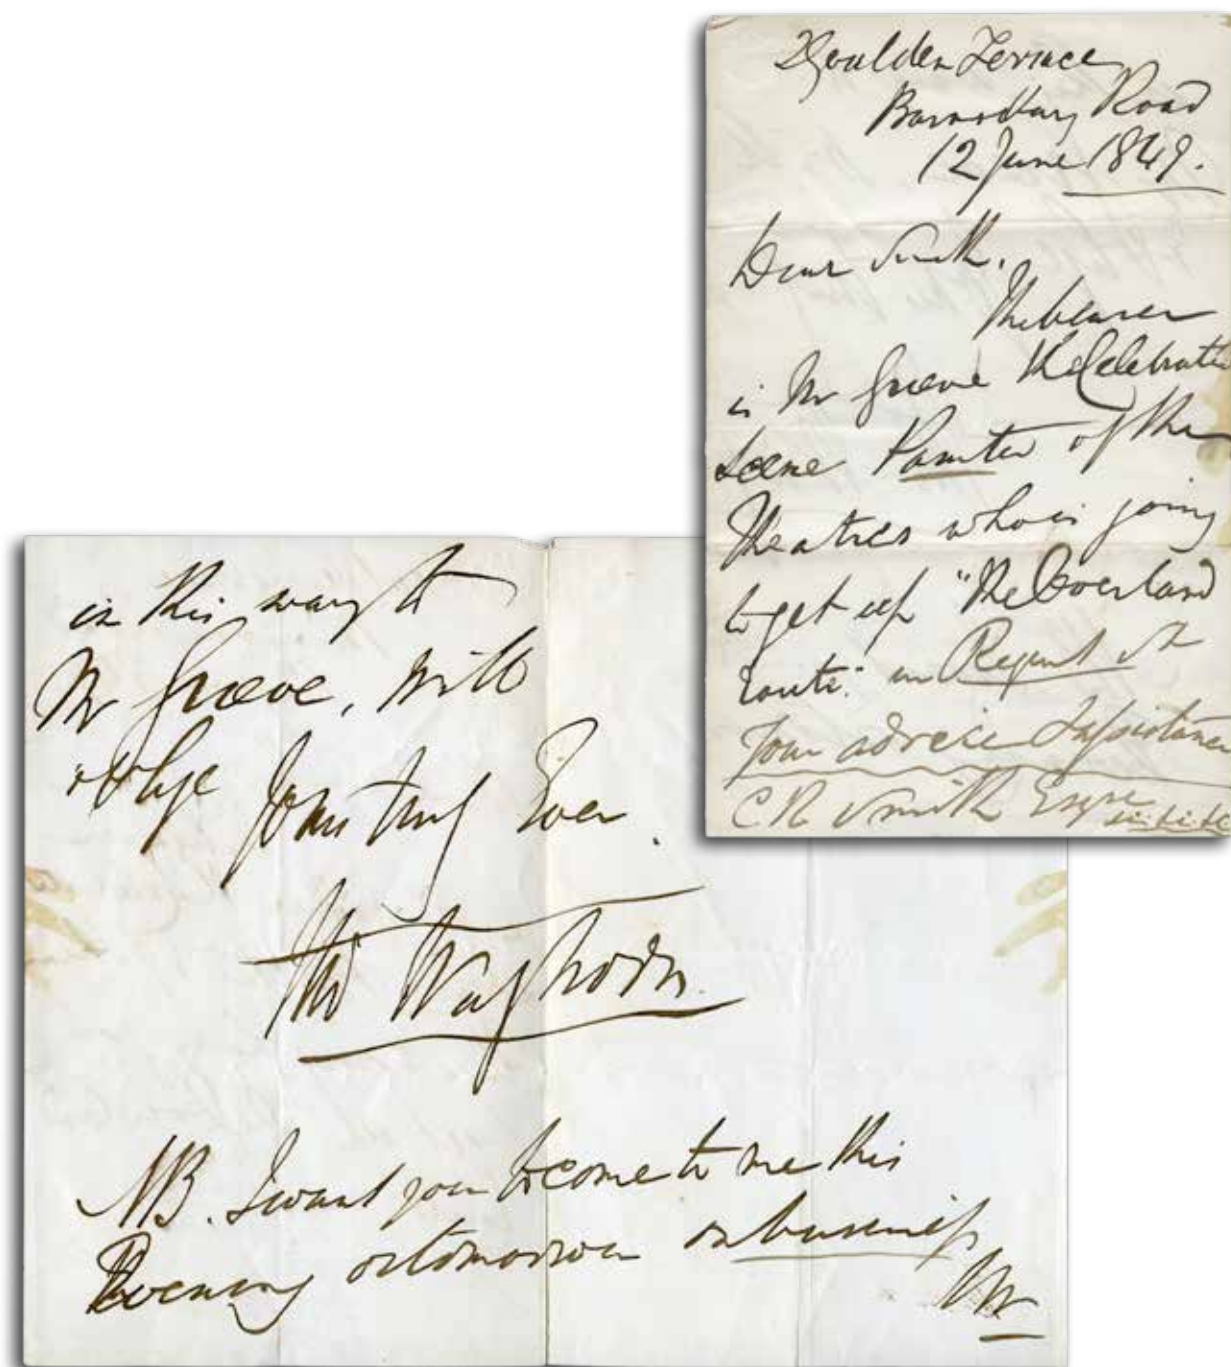 Goulden Terrace
Barnsbury Road
12 June 1849.
Dear Smith.
The bearer
is Mr Grieve the Celebrated
Scene Painter of the
Theatres who is going
to get up "The Overland
route." in Regent St
Your advice & assistance
C R Smith Esqre
in this way to
Mr Grieve, will
oblige
Yours truly Ever.
Thos Waghorn.
NB. I want you to come to me this
Evening or tomorrow on business
TW